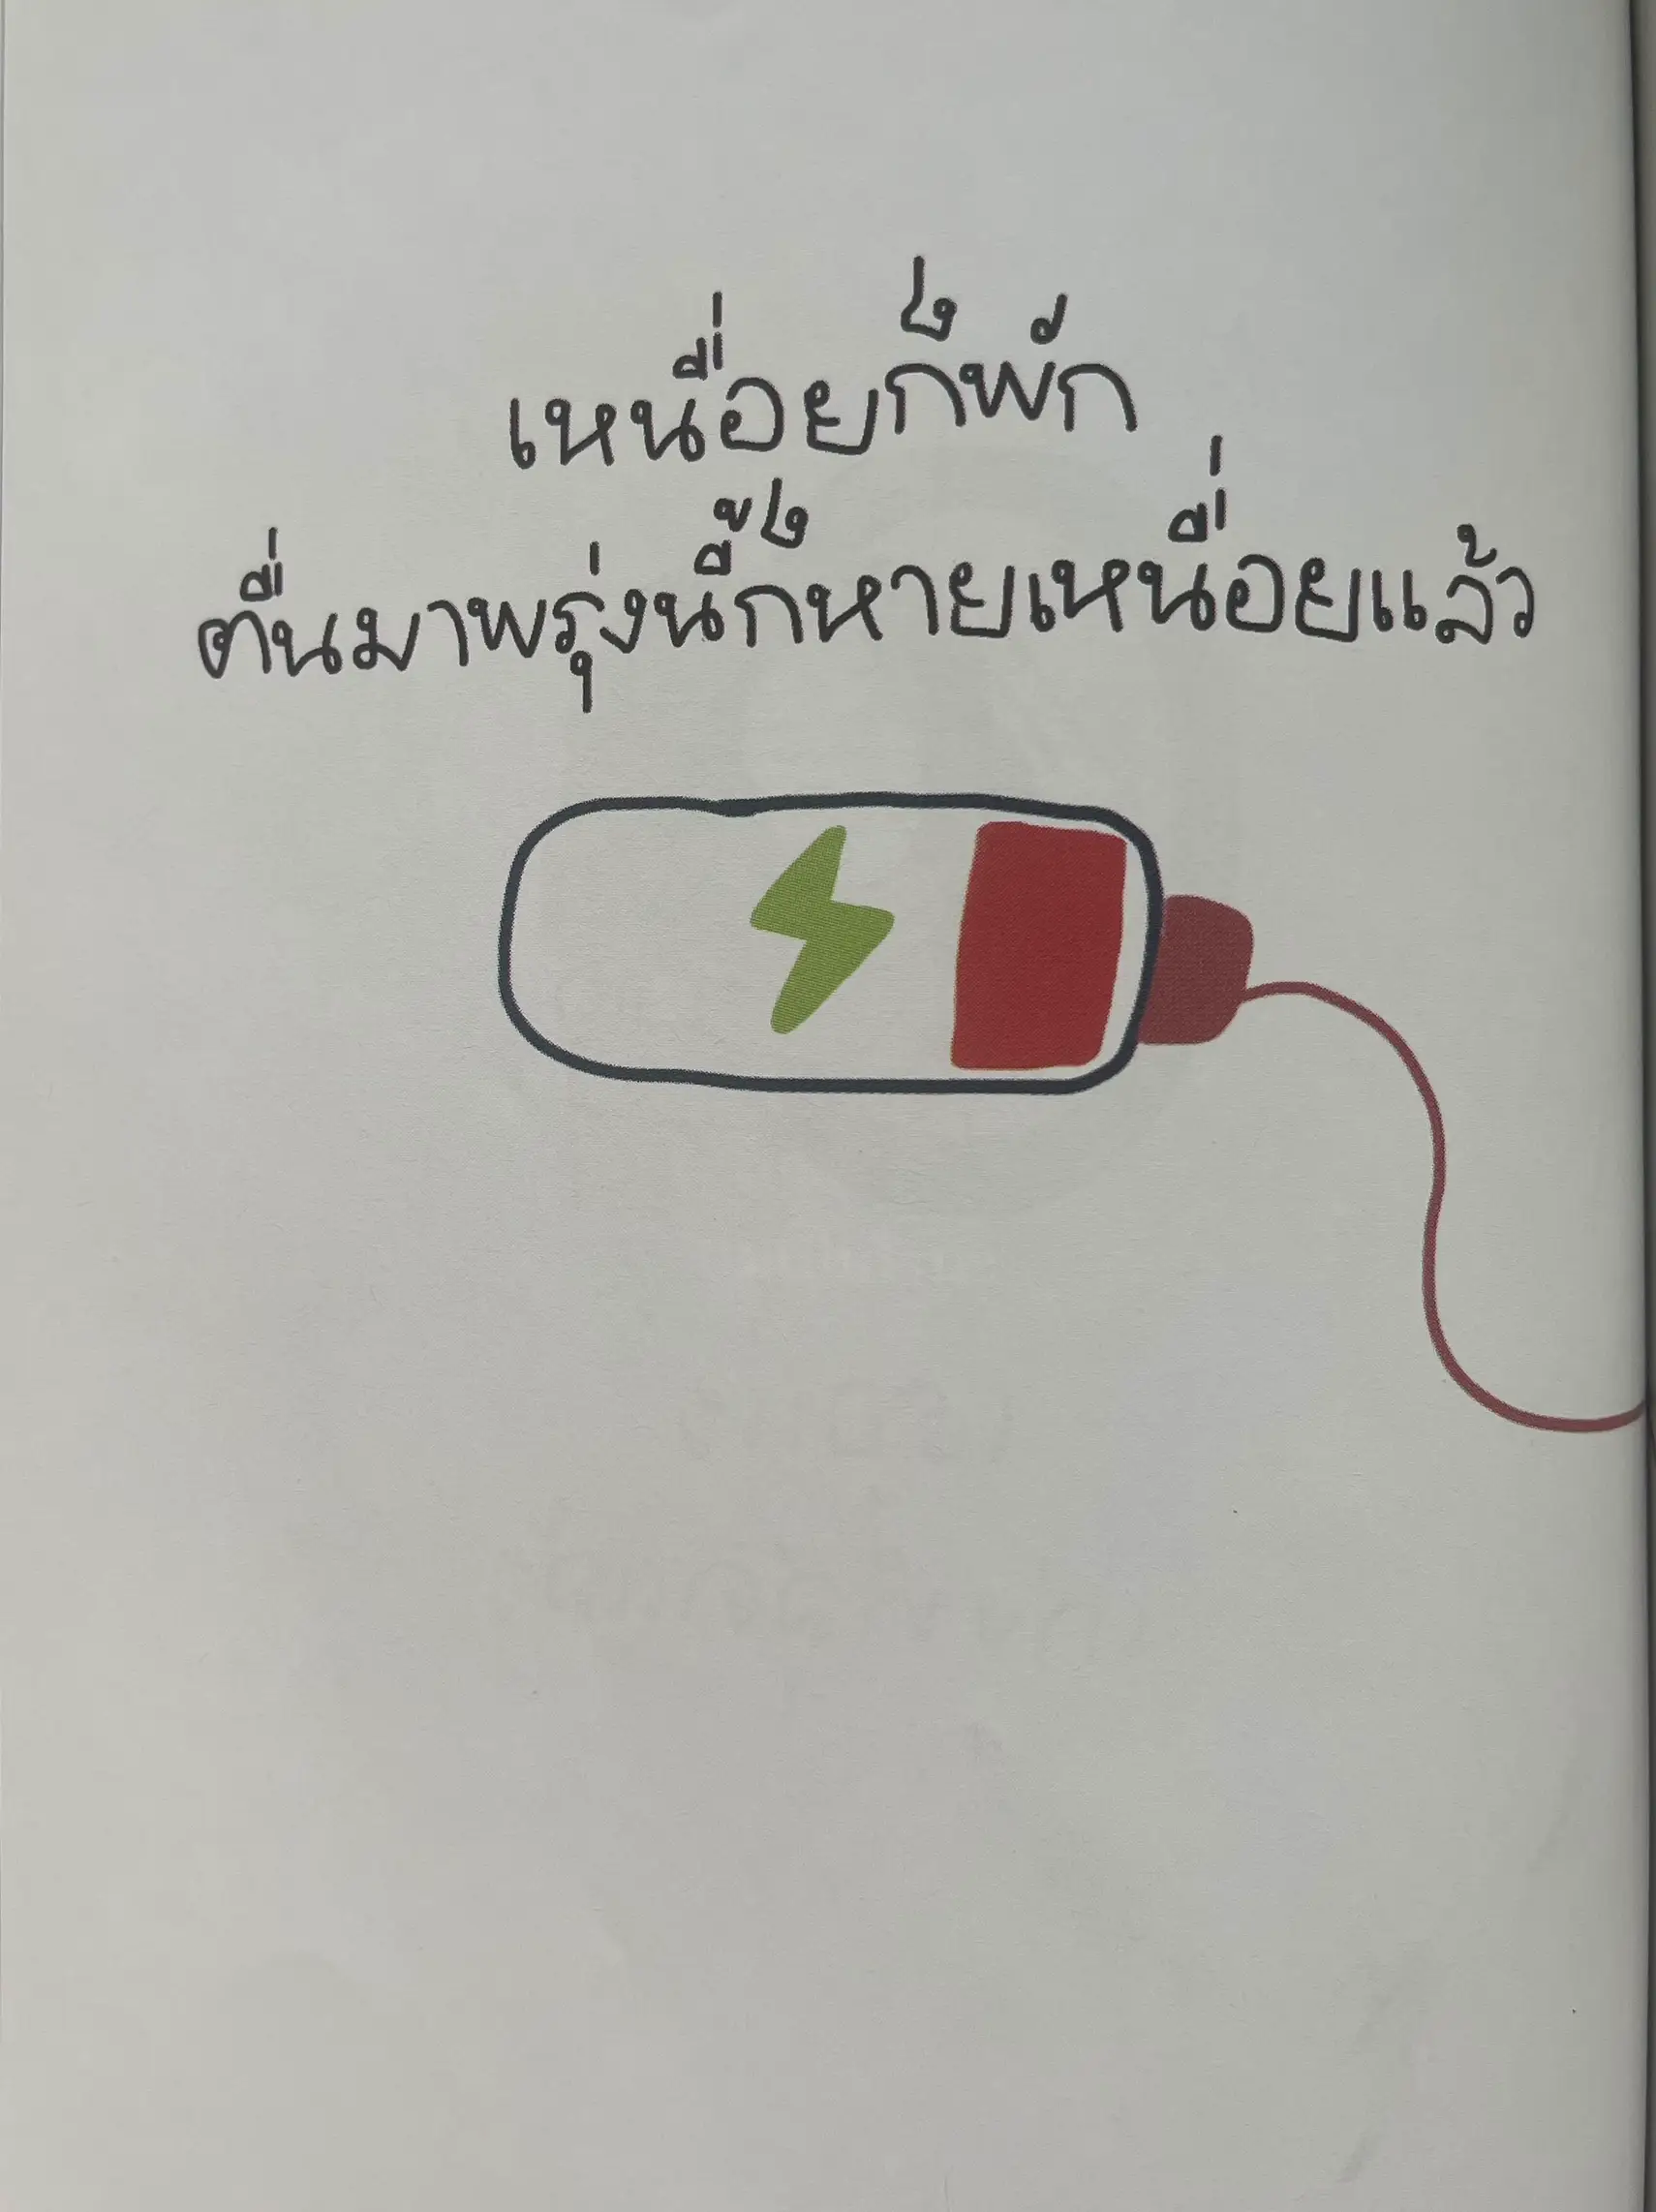 เหนื่อยก็พัก
ตื่นมาพรุ่งนี้ก็หายเหนื่อยแล้ว